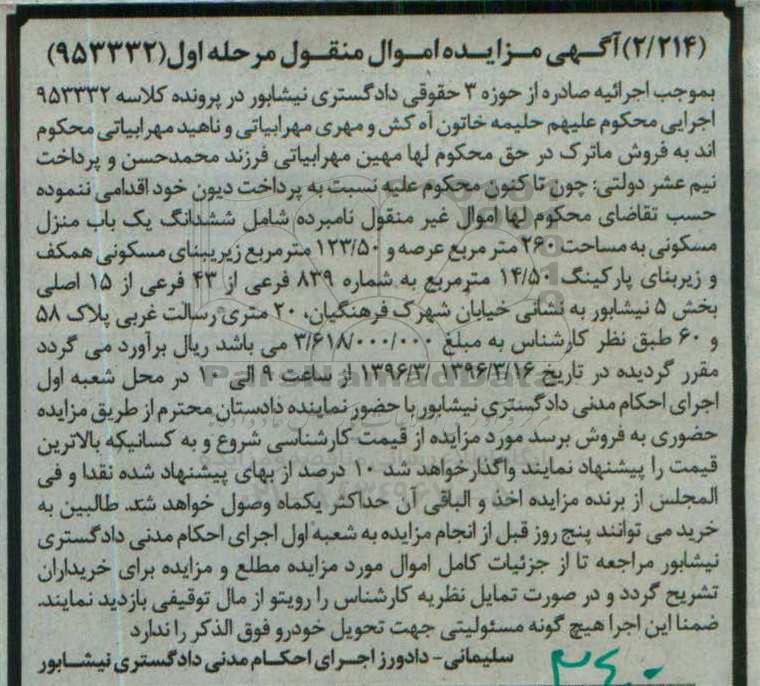 (۲/۲۱۴) آگهی مزایده اموال منقول مرحله اول (۹۵۳۳۳۲)
بموجب اجرائیه صادره از حوزه ۳ حقوقی دادگستری نیشابور در پرونده کلاسه ۹۵۳۳۳۲
اجرایی محکوم علیهم حلیمه خاتون آه کش و مهری مهرابیاتی و ناهید مهرابیاتی محکوم
اند به فروش ماترک در حق محکوم لها مهین مهرابیاتی فرزند محمدحسن و پرداخت
نیم عشر دولتی؛ چون تا کنون محکوم علیه نسبت به پرداخت دیون خود اقدامی ننموده
حسب تقاضای محکوم لها اموال غیر منقول نامبرده شامل ششدانگ یک باب منزل
مسکونی به مساحت ۲۶۰ متر مربع عرصه و ۱۲۳/۵۰ مترمربع زیربنای مسکونی همکف
و زیربنای پارکینگ ۱۴/۵۰ مترمربع به شماره ۸۳۹ فرعی از ۴۳ فرعی از ۱۵ اصلی
بخش ۵ نیشابور به نشانی خیابان شهرک فرهنگیان، ۲۰ متری رسالت غربی پلاک ۵۸
و ۶۰ طبق نظر کارشناس به مبلغ ۳/۶۱۸/۰۰۰/۰۰۰ می باشد ریال برآورد می گردد
مقرر گردیده در تاریخ ۱۳۹۶/۳/۱۶ ۱۳۹۶/۳/ از ساعت ۹ الی ۱۰ در محل شعبه اول
اجرای احکام مدنی دادگستری نیشابور با حضور نماینده دادستان محترم از طریق مزایده
حضوری به فروش برسد مورد مزایده از قیمت کارشناسی شروع و به کسانیکه بالاترین
قیمت را پیشنهاد نمایند واگذار خواهد شد ۱۰ درصد از بهای پیشنهاد شده نقدا و فی
المجلس از برنده مزایده اخذ و الباقی آن حداکثر یکماه وصول خواهد شد. طالبین به
خرید می توانند پنج روز قبل از انجام مزایده به شعبه اول اجرای احکام مدنی دادگستری
نیشابور مراجعه تا از جزئیات کامل اموال مورد مزایده مطلع و مزایده برای خریداران
تشریح گردد و در صورت تمایل نظریه کارشناس را رویتو از مال توقیفی بازدید نمایند.
ضمنا این اجرا هیچ گونه مسئولیتی جهت تحویل خودرو فوق الذکر را ندارد
سلیمانی - دادورز اجرای احکام مدنی دادگستری نیشابور
ParsNamadData